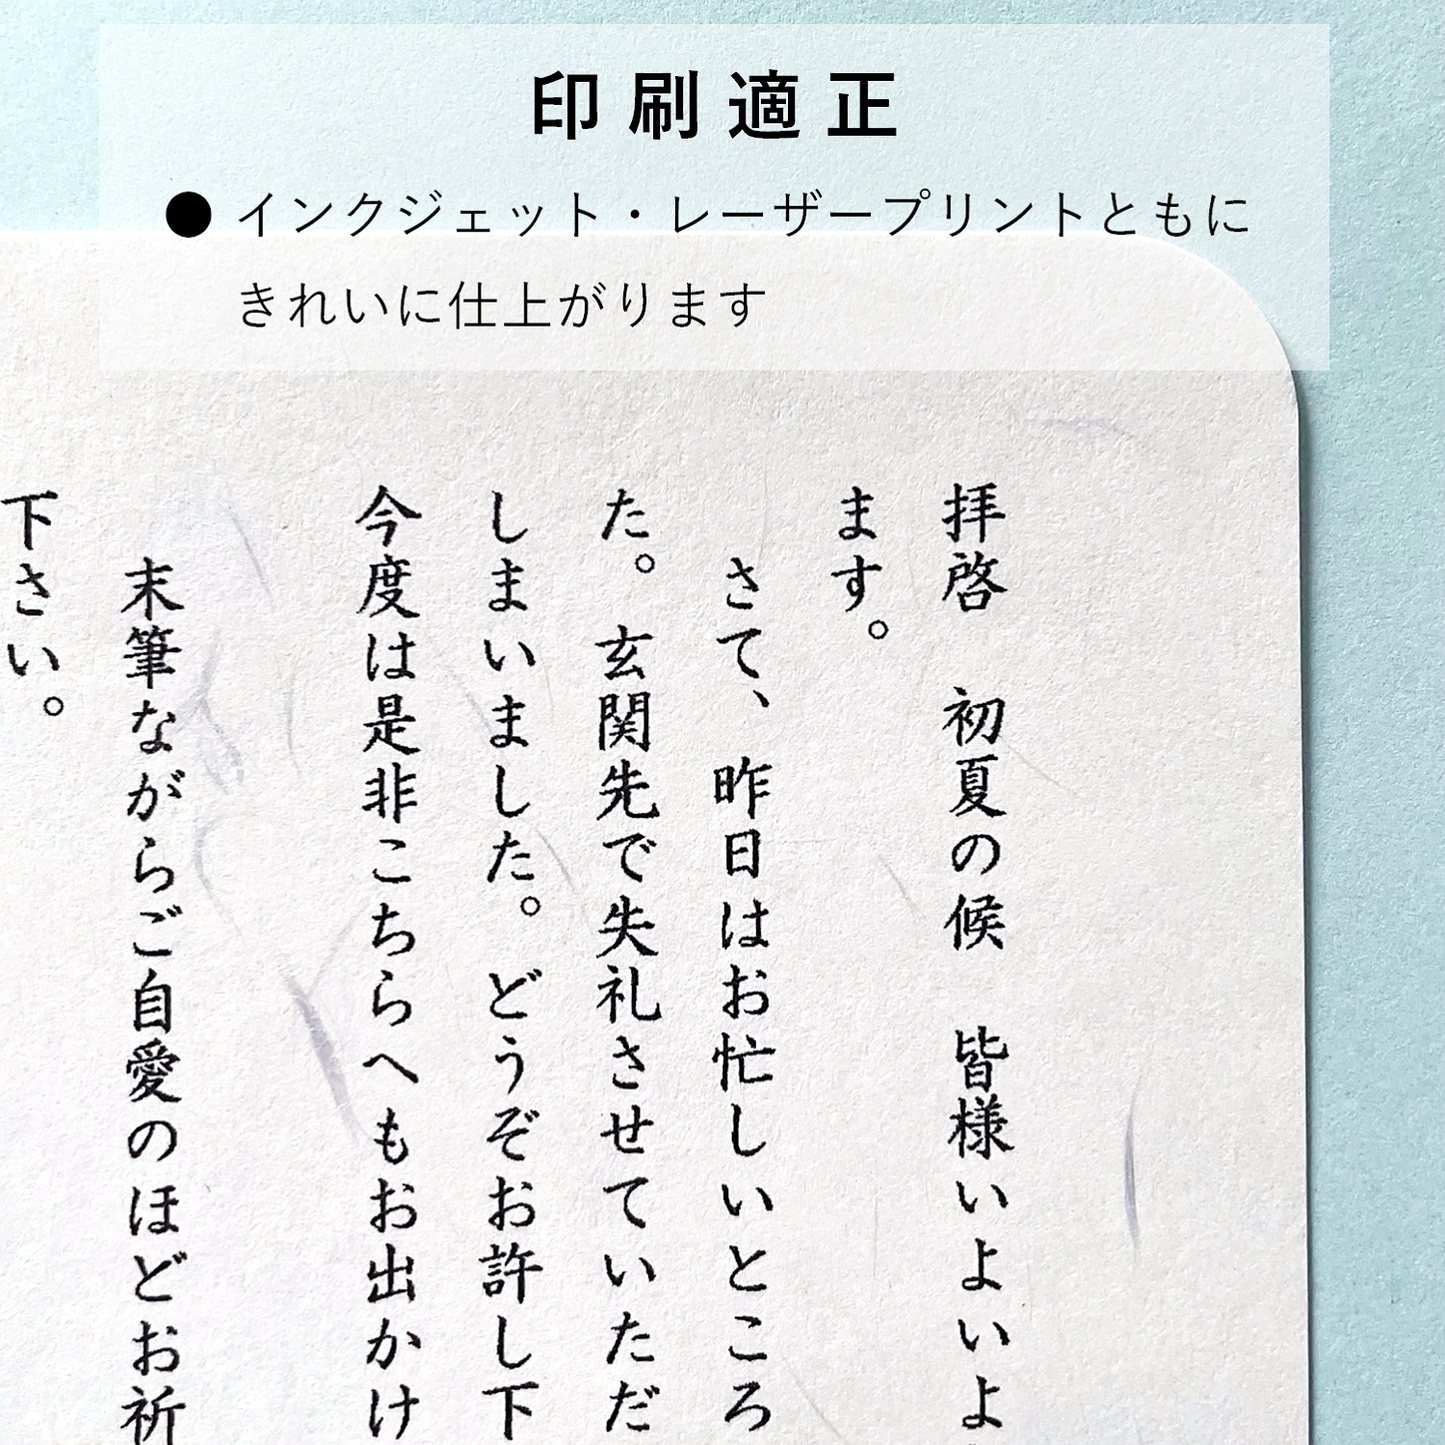 印刷適正
● インクジェット・レーザープリントともに
きれいに仕上がります
拝啓　初夏の候　皆様いよいよ
ます。
さて、昨日はお忙しいところ
た。玄関先で失礼させていただ
しまいました。どうぞお許し下
今度は是非こちらへもお出かけ
末筆ながらご自愛のほどお祈
下さい。